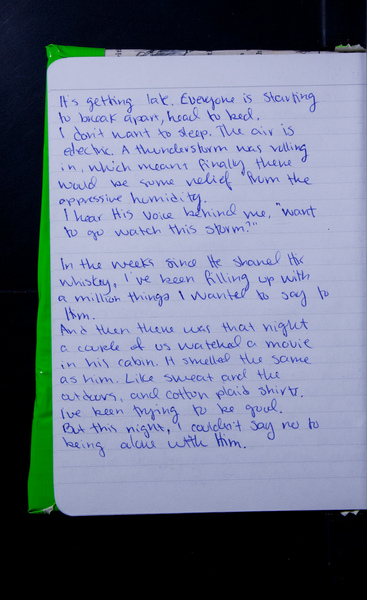 It's getting late. Everyone is starting
to break apart, head to bed.
I don't want to sleep. The air is
electric. A thunderstorm was rolling
in, which meant finally there
would be some relief from the
oppressive humidity.
I hear His voice behind me, "want
to go watch this storm?"
In the weeks since He shared His
whiskey, I've been filling up with
a million things I wanted to say to
Him.
And then there was that night
a couple of us watched a movie
in his cabin. It smelled the same
as him. Like sweat and the
outdoors, and cotton plaid shirts.
I've been trying to be good.
But this night, I couldn't say no to
being alone with Him.